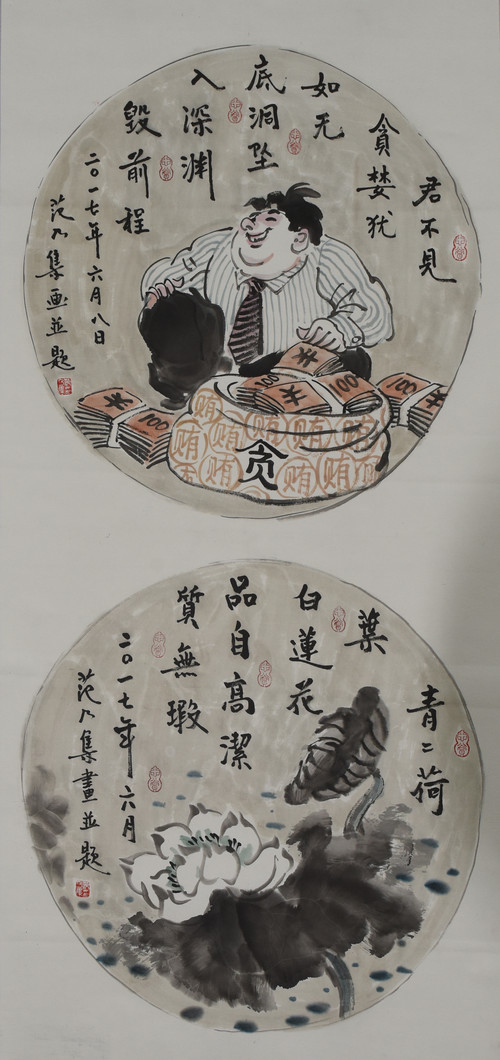 君不見
貪婪犹
如无
底洞坠
入深渊
毁前程
二〇一七年六月八日
范九集画並题
100
100
100
100
贿 贿 贿 贿
贿 贿 贿
贪
青二荷
葉
白蓮花
品自高潔
質無瑕
二〇一七年六月
范九集畫並题